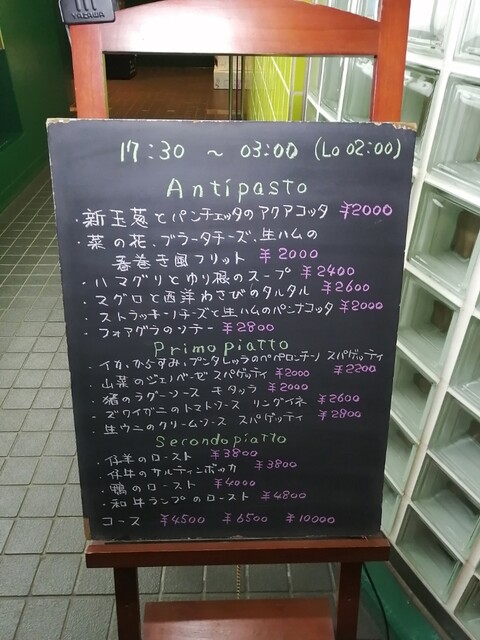 YAZAWA
17:30 ~ 03:00 (Lo 02:00)
Antipasto
・新玉葱とパンチェッタのアクアコッタ ¥2000
・菜の花、ブラータチーズ、生ハムの
春巻き風フリット ¥2000
・ハマグリとゆり根のスープ ¥2400
・マグロと西洋わさびのタルタル ¥2600
・ストラッキーノチーズと生ハムのパンナコッタ ¥2000
・フォアグラのソテー ¥2800
Primo piatto
・イカ、からすみ、プンタレッラのペペロンチーノ スパゲッティ ¥2200
・山菜のジェノベーゼ スパゲッティ ¥2000
・猪のラグーソース モタッラ ¥2000
・ズワイガニのトマトソース リングイネ ¥2600
・生ウニのクリームソース スパゲッティ ¥2800
Secondo piatto
・仔羊のロースト ¥3800
・仔牛のサルティンボッカ ¥3800
・鴨のロースト ¥4000
・和牛ランプのロースト ¥4800
コース ¥4500 ¥6500 ¥10000